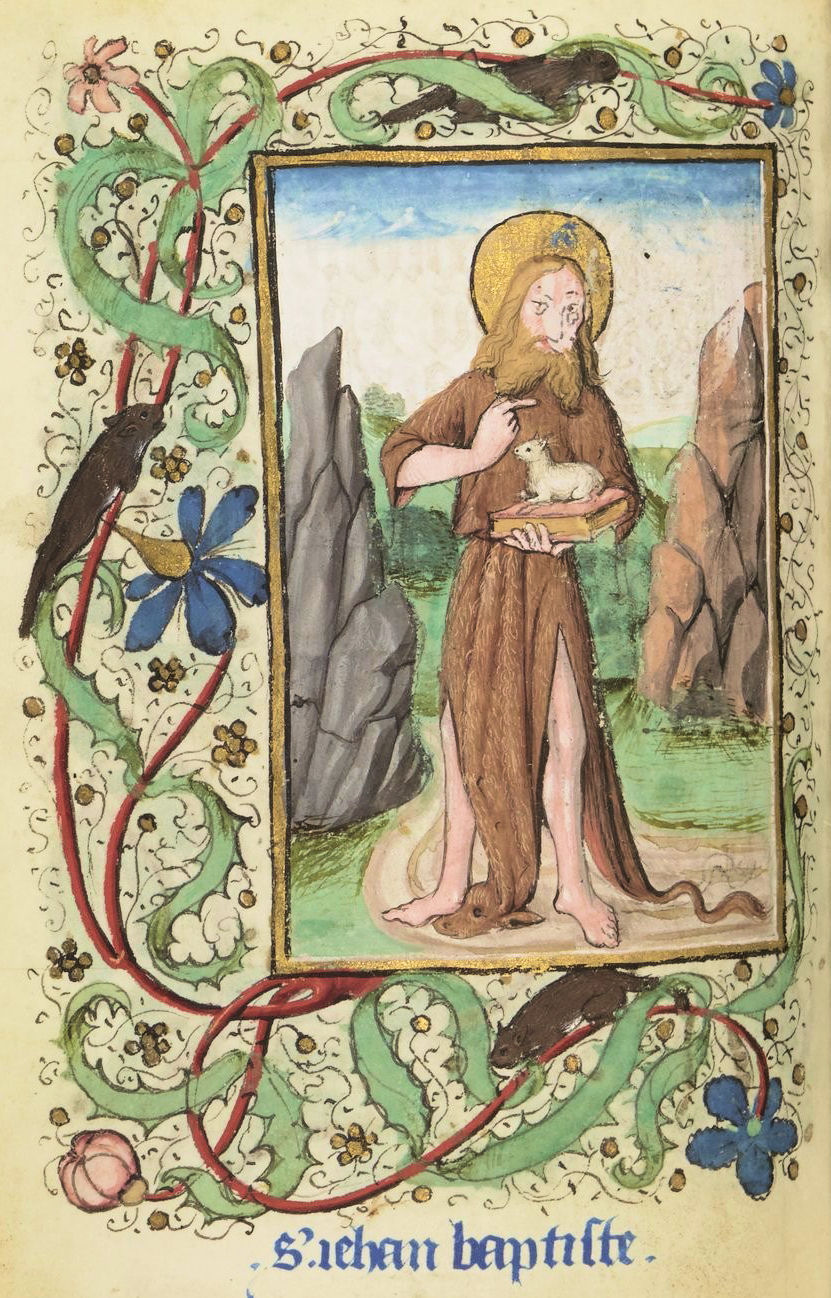 . s'. iehan baptiste .